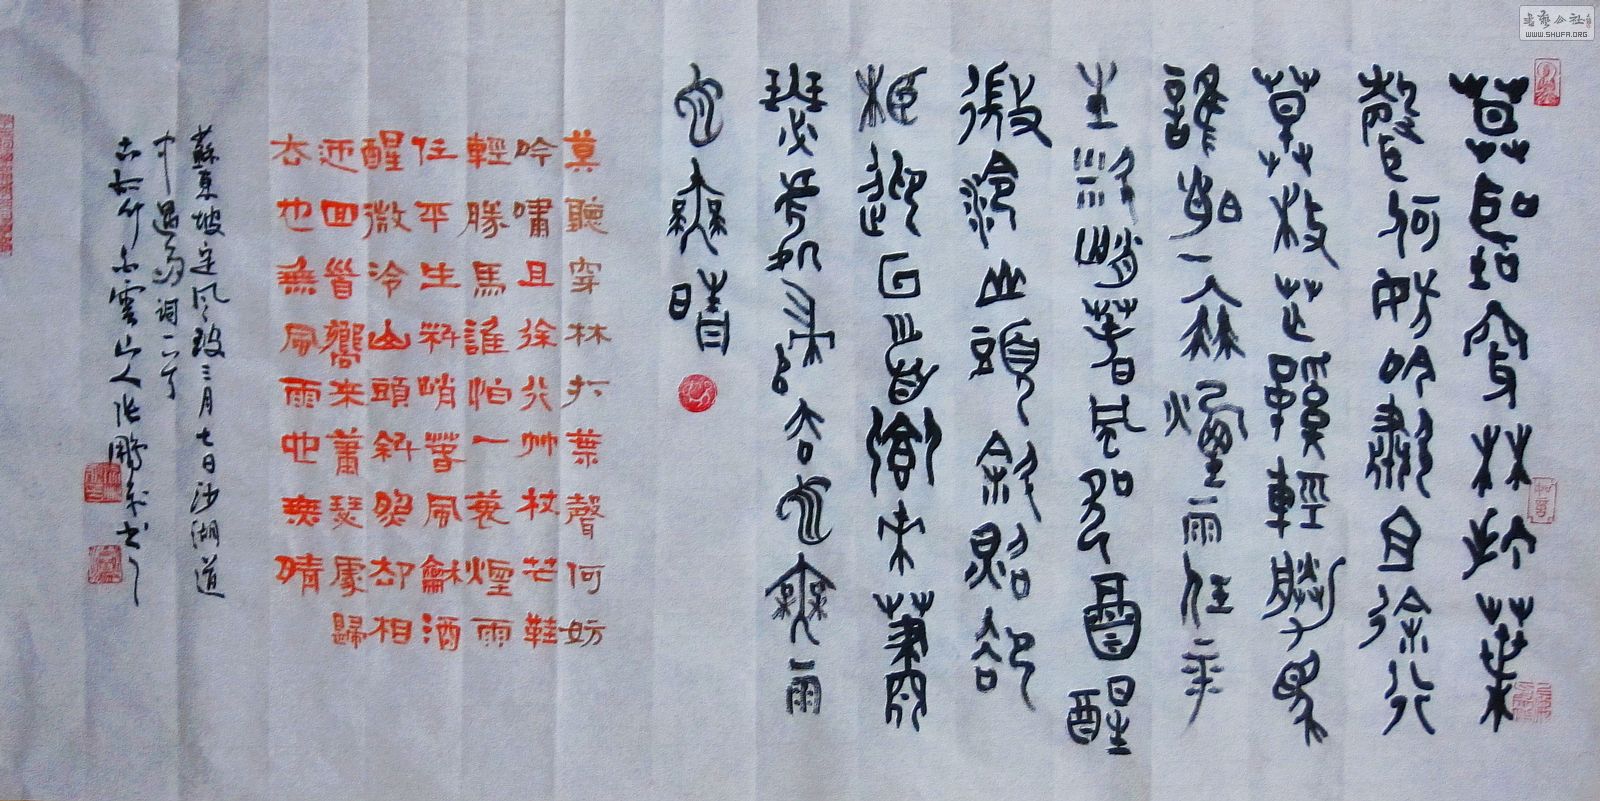 莫聽穿林打葉
聲何妨吟嘯且徐行
竹杖芒鞋輕勝馬
誰怕一蓑煙雨任平
生料峭春風酒醒
微冷山頭斜照卻
相迎回首向來蕭
瑟處歸去也無雨
也無晴
莫聽穿林打葉聲何妨
吟嘯且徐行竹杖芒鞋
輕勝馬誰怕一蓑煙雨
任平生料峭春風龡酒
醒微冷山頭斜照却相
迎回首嚮来蕭瑟處歸
去也無風雨也無晴
蘇東坡定风波三月七日沙湖道
中遇雨词一首
雲山人张鵬书
WWW.SHUFA.ORG